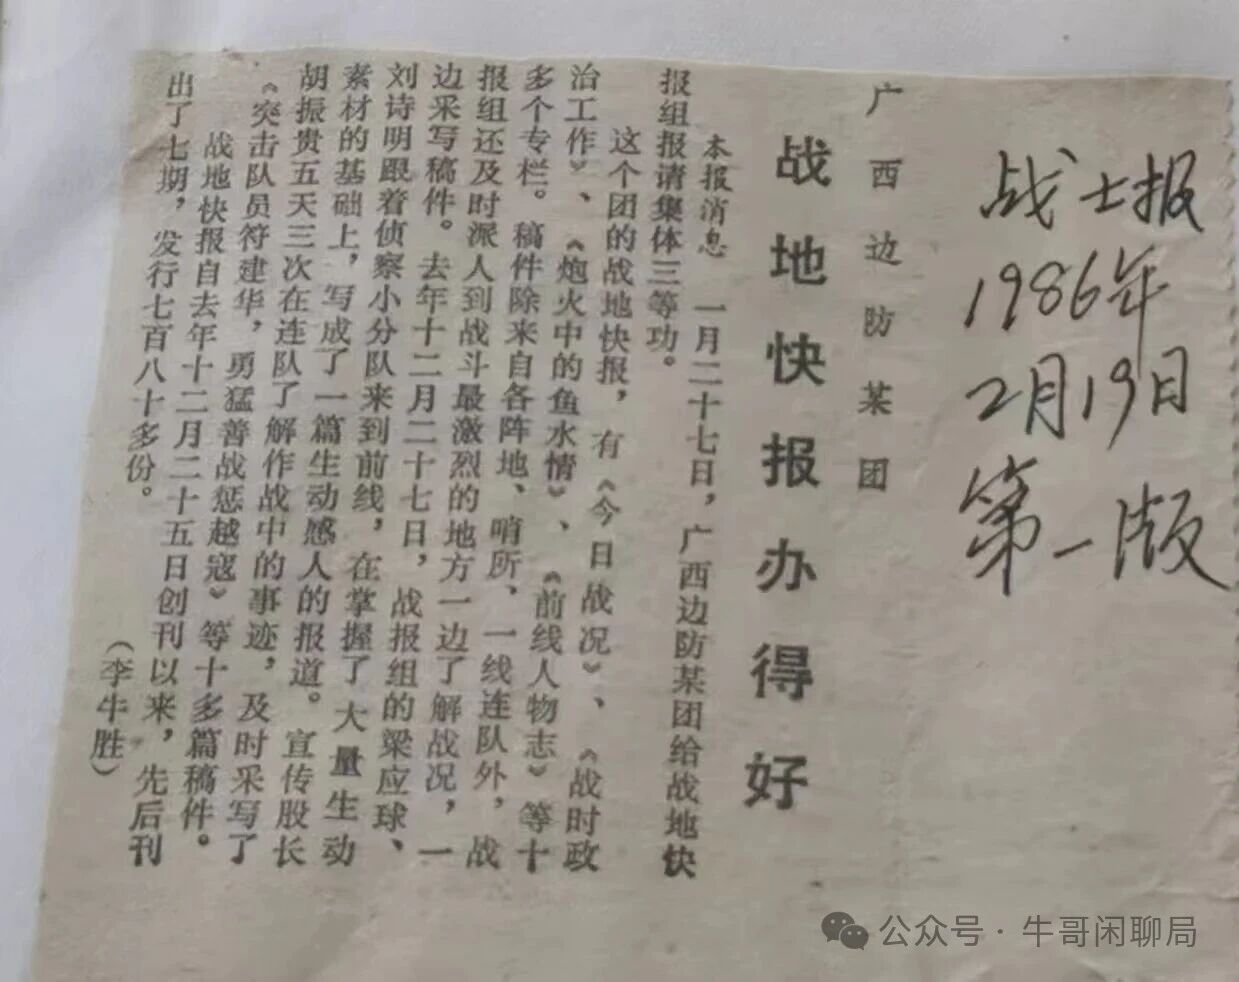 战士报
1986年
2月19日
第一版
广西边防某团
战地快报办得好
本报消息　一月二十七日，广西边防某团给战地快
报组报请集体三等功。
这个团的战地快报，有《今日战况》、《战时政
治工作》、《炮火中的鱼水情》、《前线人物志》等十
多个专栏。稿件除来自各阵地、哨所、一线连队外，战
报组还及时派人到战斗最激烈的地方一边了解战况，一
边采写稿件。去年十二月二十七日，战报组的梁应球、
刘诗明跟着侦察小分队来到前线，在掌握了大量生动
素材的基础上，写成了一篇生动感人的报道。宣传股长
胡振贵五天三次在连队了解作战中的事迹，及时采写了
《突击队员符建华，勇猛善战惩越寇》等十多篇稿件。
战地快报自去年十二月二十五日创刊以来，先后刊
出了七期，发行七百八十多份。
（李牛胜）
公众号·牛哥闲聊局